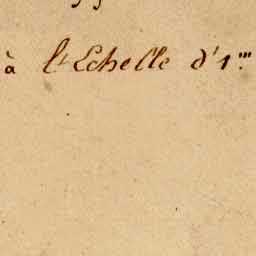 à l'Echelle d'1'''.